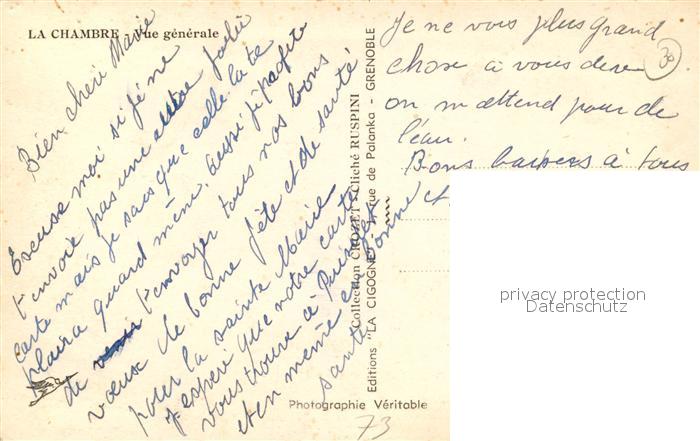 LA CHAMBRE - Vue générale
Bien chere Marie
Excuse moi si je ne
t'envoie pas une autre jolie
carte mais je sais que celle la te
plaira quand même, aussi je profite
de t'envoyer tous nos bons
vœuse de bonne fête et de santé
pour la sainte Marie
J'esperé que notre carte
vous trouve à Puisque
et en même et bonne
santé
Je ne vois plus grand
chose a vous dire
on m'attend pour de
l'eau.
Bons baisers à tous
et
30
Collection CROZET - Cliché RUSPINI
Editions "LA CIGOGNE" rue de Palanka - GRENOBLE
Photographie Véritable
73
privacy protection
Datenschutz